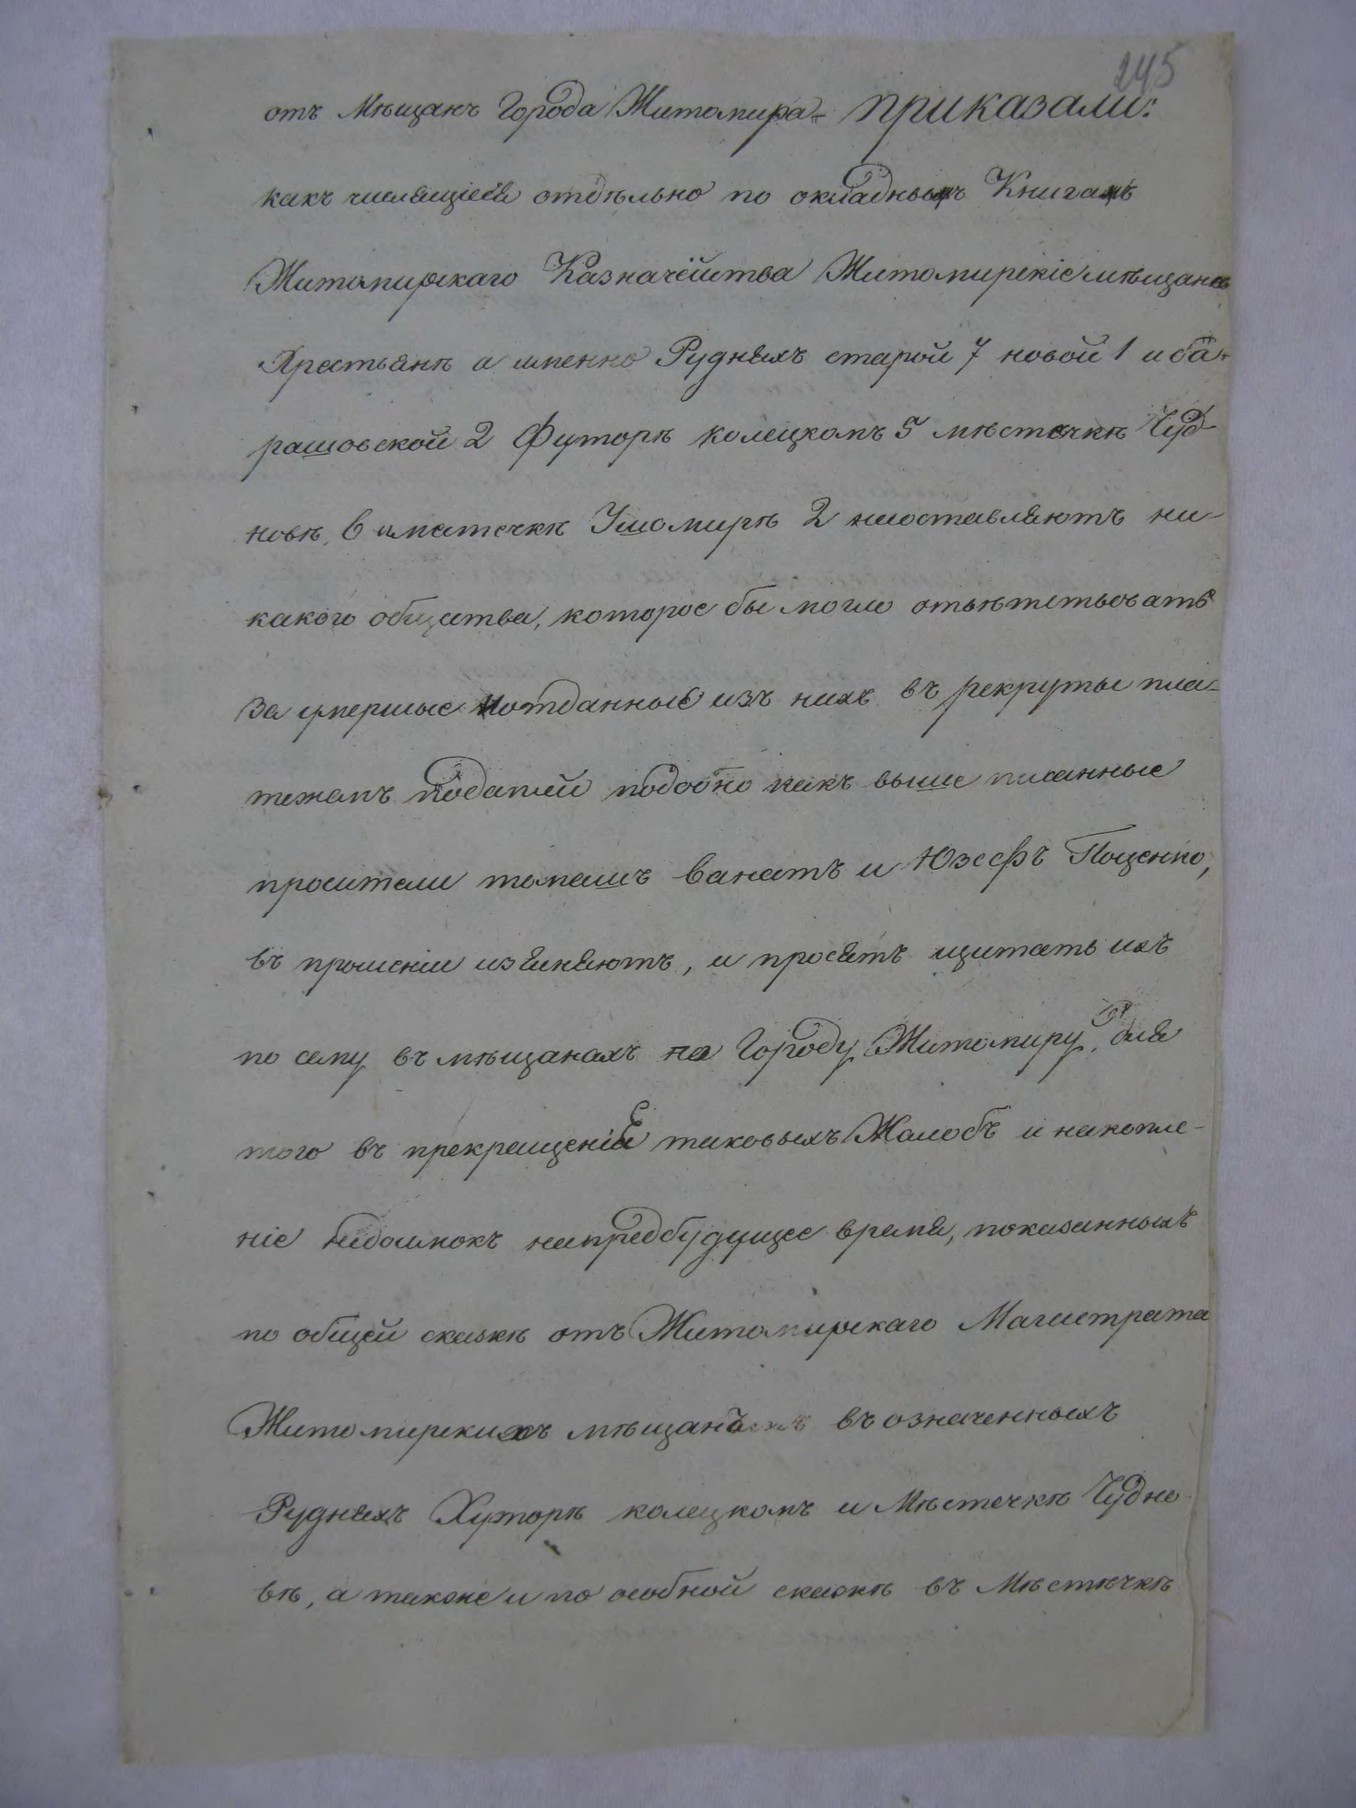 245
отъ Мѣщанъ Города Житомира – приказали:
какъ числящіеся отдѣльно по окладнымъ Книгамъ
Житомирскаго Казначейства Житомирскіе мѣщане
Крестьянѣ а именно Рудняхъ старой 7 новой 1 и ба-
рашовской 2 Футорѣ колецкомъ 5 мѣстечкѣ Чуд-
новѣ 6 иместечкѣ Ушомирѣ 2 несоставляютъ ни-
какого общества, которое бы могло отвѣтствовать
за умершые и отданные изъ нихъ въ рекруты пла-
тежомъ податей подобно какъ выше писанные
просители томашъ Ванатъ и Юзефъ Поценко,
въ прошеніи изъясняютъ, и просятъ щитать ихъ
по сему въ мѣщанахъ по Городу Житомиру, для
того въ прекращеніе таковыхъ Жалобъ и накопле-
ніе недоимокъ напредбудущее время, показанныхъ
по общей сказкѣ отъ Житомирскаго Магистрата
Житомирскихъ мѣщанъ въ означенныхъ
Рудняхъ Хуторѣ колецкомъ и Мѣстечкѣ Чудно-
вѣ, а также и по особной сказкѣ въ Мѣстѣчкѣ